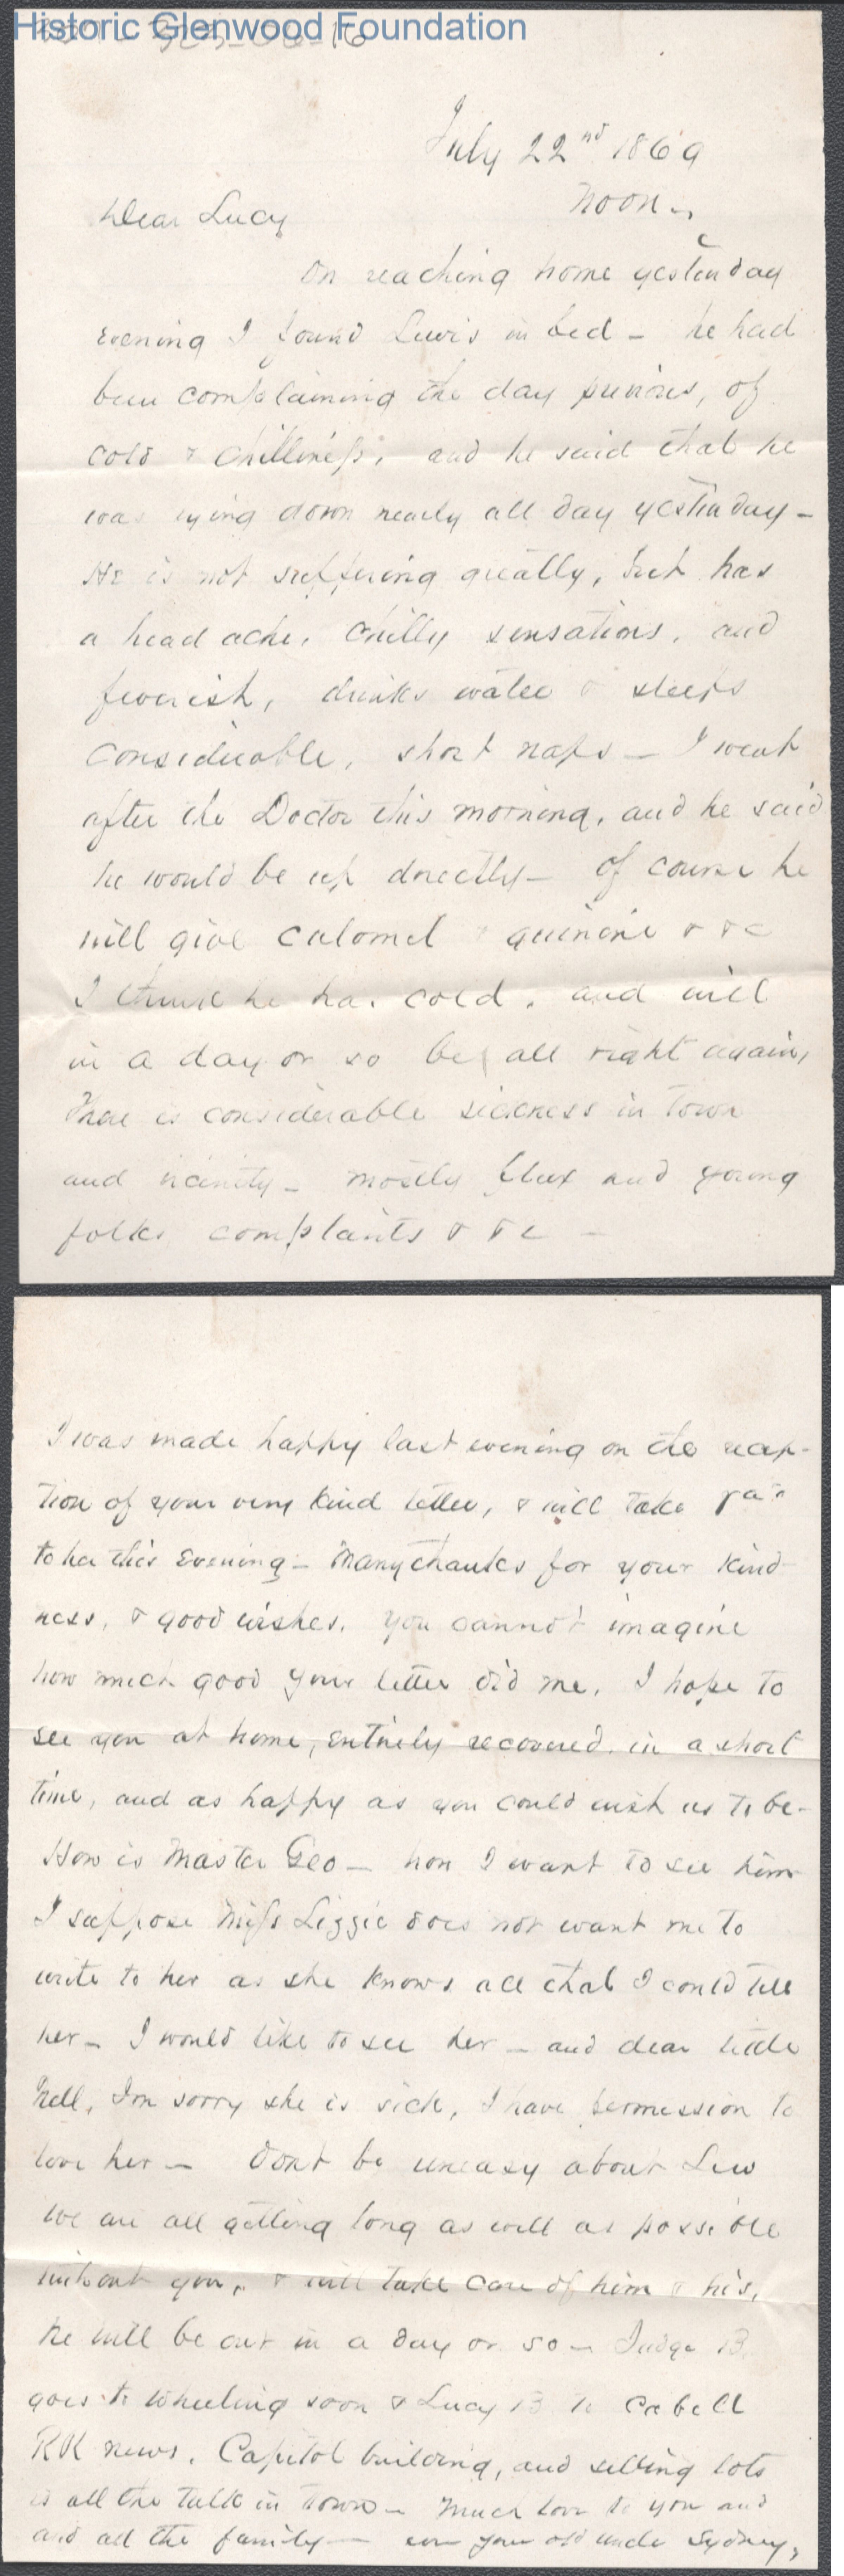 Historic Glenwood Foundation
July 22nd 1869
Noon -
Dear Lucy
On reaching home yesterday
evening I found Lewis in bed - he had
been complaining the day previous, of
cold & chilliness, and he said that he
was lying down nearly all day yesterday -
He is not suffering greatly, but has
a head ache, chilly sensations, and
feverish, drinks water & sleeps
considerable, short naps - I went
after the Doctor this morning, and he said
he would be up directly - of course he
will give calomel & quinine & &c
I think he has cold, and will
in a day or so be all right again,
There is considerable sickness in town
and vicinity - mostly flux and young
folks complaints & &c -
I was made happy last evening on the recep-
tion of your very kind letter, & will take
to her this Evening - Many thanks for your kind-
ness, & good wishes. You cannot imagine
how much good your letter did me, I hope to
see you at home, entirely recovered, in a short
time, and as happy as you could wish us to be -
How is Master Geo - how I want to see him
I suppose Miss Lizzie does not want me to
write to her as she knows all that I could tell
her - I would like to see her - and dear little
Nell, Im sorry she is sick, I have permission to
love her - Dont be uneasy about Lew
we are all getting long as well as possible
without you, & will take care of him & his,
he will be out in a day or so - Judge B.
goes to Wheeling soon & Lucy B to Cabell
RR news, Capitol building, and selling lots
is all the talk in town - Much love to you and
and all the family - your old uncle Sydney,